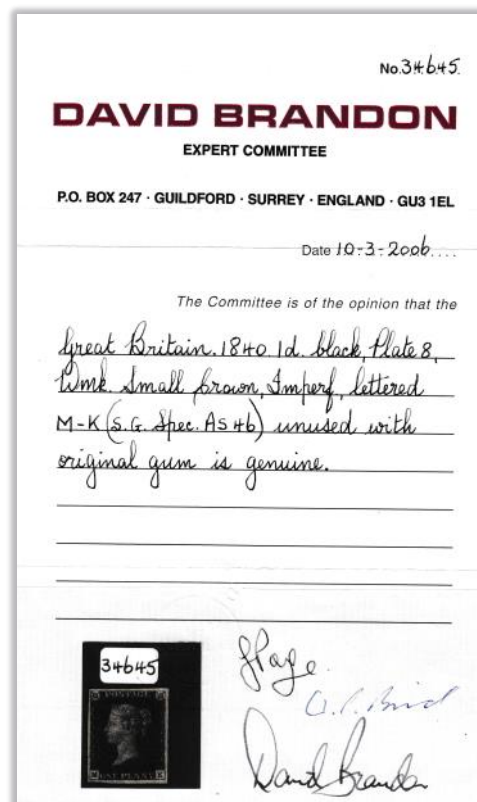 No. 34645.
DAVID BRANDON
EXPERT COMMITTEE
P.O. BOX 247 · GUILDFORD · SURREY · ENGLAND · GU3 1EL
Date 10-3-2006....
The Committee is of the opinion that the
Great Britain. 1840 1d. black, Plate 8,
Wmk. Small Crown, Imperf, lettered
M-K (S.G. Spec. AS46) unused with
original gum is genuine.
34645
POSTAGE
ONE PENNY
M K
David Brandon